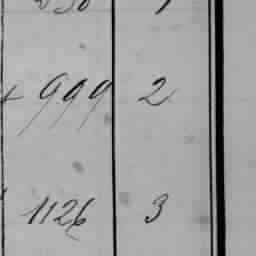 999 2
1126 3